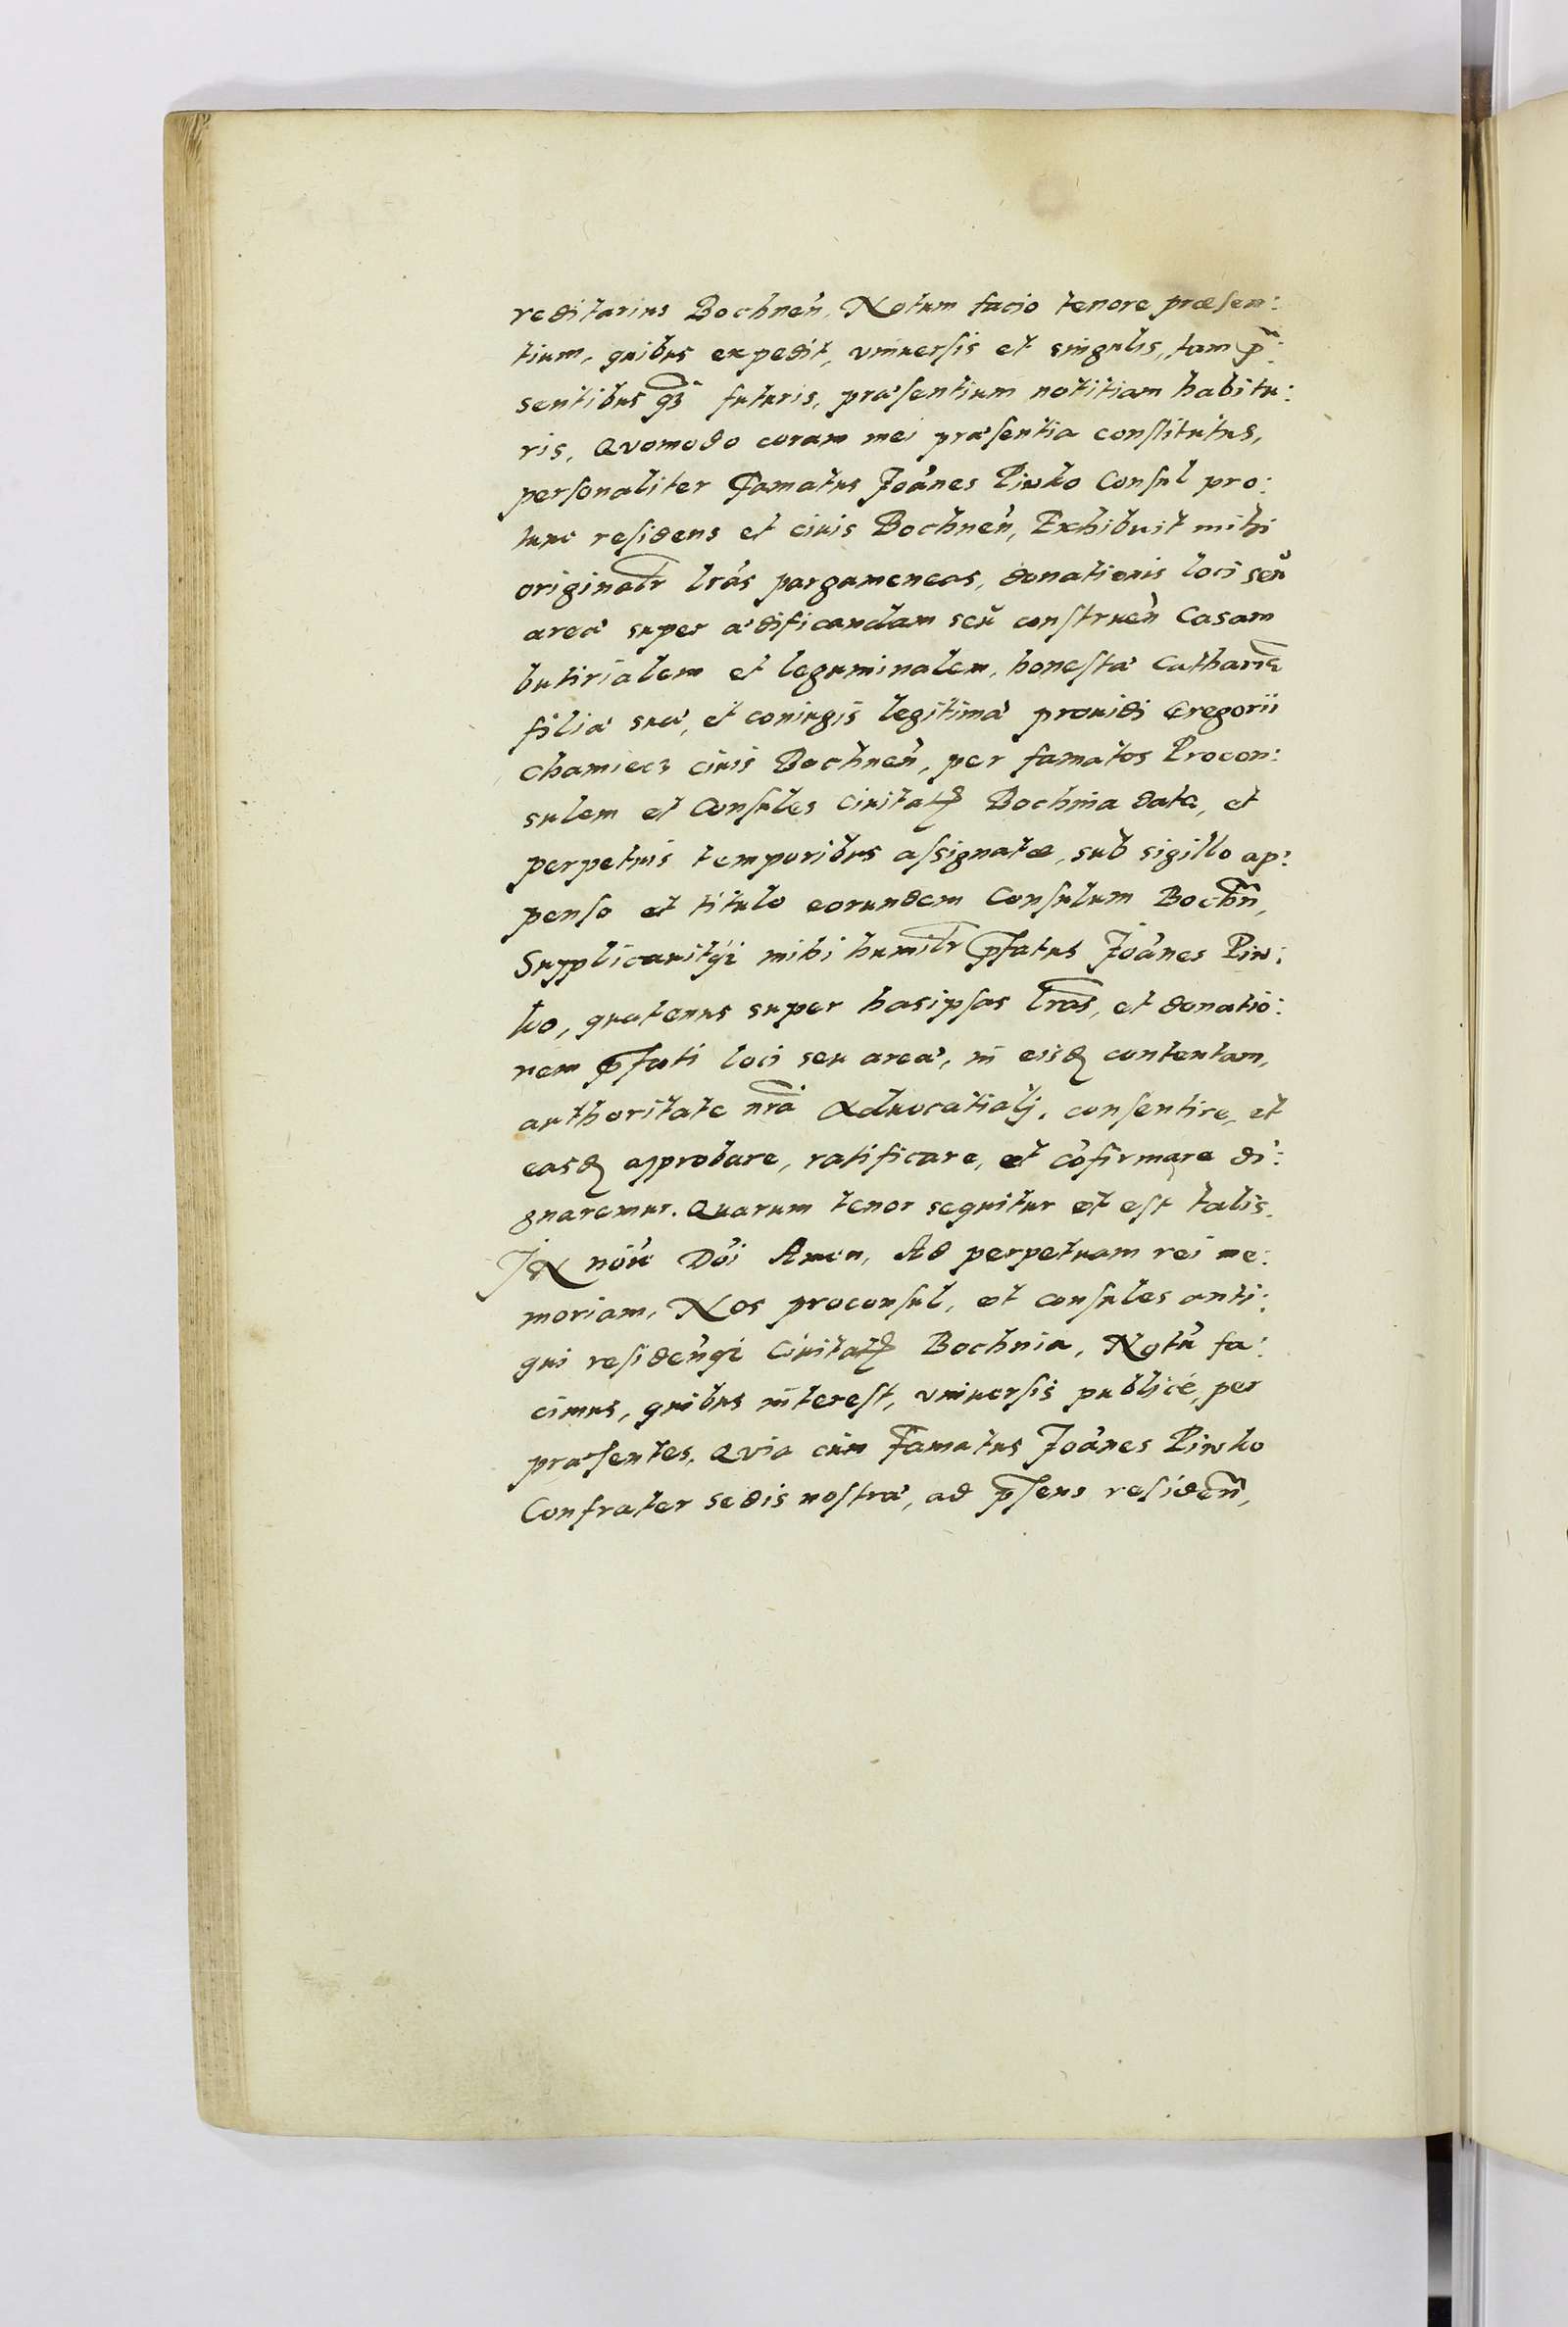 reditarius Bochneń, Notum facio tenore præsen:
tium, quibus expedit, vniuersis et singulis, tam p̃:
sentibus q̃ꝫ futuris, præsentium notitiam habitu:
ris, Quomodo coram mei præsentia constitutus,
personaliter Famatus Joãnes Piwko Consul pro:
tunc residens et ciuis Bochneń, Exhibuit mihi
originalr̃ lrãs pargameneas, donationis loci seu
areæ super ædificandam seu construeñ Casam
butirialem et leguminalem, honestæ Catharinæ
filiæ suæ, et coniugis legitimæ prouidi Gregorii
Chamiecz ciuis Bochneń, per famatos Procon:
sulem et Consules Ciuitatꝭ Bochniæ datæ, et
perpetuis temporibus assignatæ, sub sigillo ap:
penso et titulo eorundem Consulum Bochñ,
Supplicauitqꝫ mihi humilr̃ p̃fatus Joãnes Piw:
ko, quatenus super hasipsas lrãs, et donatio:
nem p̃fati loci seu areæ, in eisdꝫ contentam,
authoritate nr̃a Aduocatialj, consentire, et
easdꝫ approbare, ratificare, et cõfirmare di:
gnaremur. Quarum tenor sequitur et est talis.
IN nõie Dñi Amen, Ad perpetuam rei me:
moriam, Nos proconsul, et consules anti:
qui residenꝫqꝫ Ciuitatꝭ Bochniæ, Notũ fa:
cimus, quibus interest, vniuersis publicè, per
præsentes, Quia cum Famatus Joãnes Piwko
Confrater sedis nostræ, ad p̃sens resideñ,